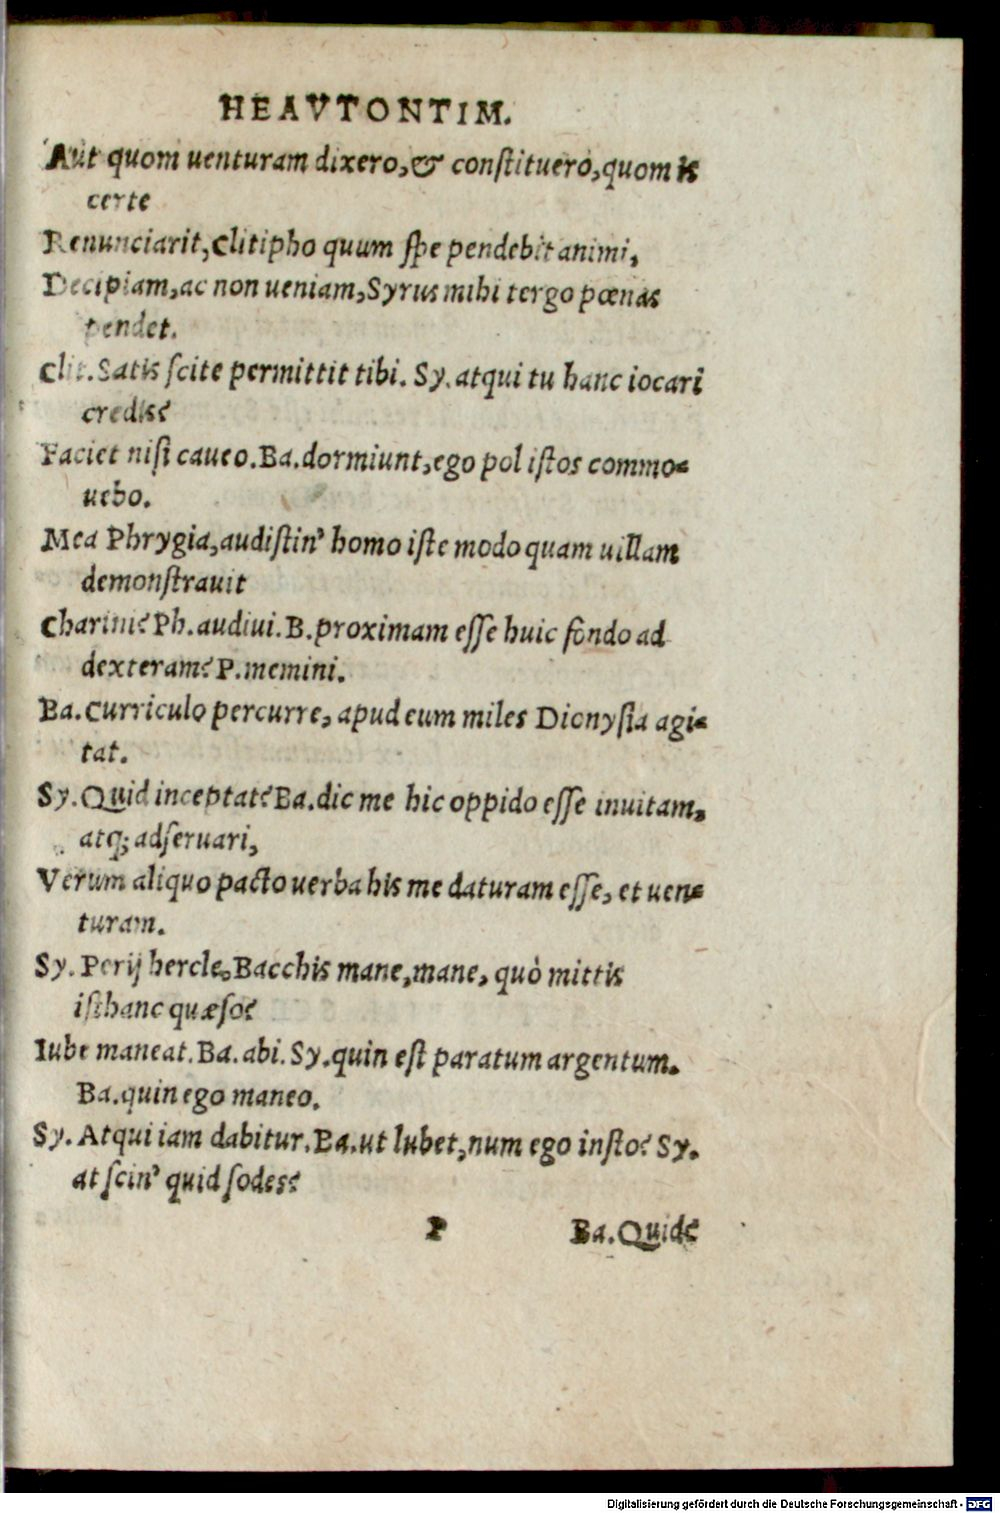 HEAVTONTIM.
Aut quom uenturam dixero, & constituero, quom is
certe
Renunciarit, Clitipho quum spe pendebit animi,
Decipiam, ac non ueniam, Syrus mihi tergo pœnas
pendet.
Clit. Satis scite permittit tibi. Sy. atqui tu hanc iocari
credis?
Faciet nisi caueo. Ba. dormiunt, ego pol istos commo-
uebo.
Mea Phrygia, audistin' homo iste modo quam uillam
demonstrauit
Charini? Ph. audiui. B. proximam esse huic fundo ad
dexteram? P. memini.
Ba. Curriculo percurre, apud eum miles Dionysia agi-
tat.
Sy. Quid inceptat? Ba. dic me hic oppido esse inuitam,
atq; adseruari,
Verum aliquo pacto uerba his me daturam esse, et uen-
turam.
Sy. Perij hercle. Bacchis mane, mane, quò mittis
isthanc quæso?
Iube maneat. Ba. abi. Sy. quin est paratum argentum.
Ba. quin ego maneo.
Sy. Atqui iam dabitur. Ba. ut lubet, num ego insto? Sy.
at scin' quid sodes?
P Ba. Quid?
Digitalisierung gefördert durch die Deutsche Forschungsgemeinschaft - DFG